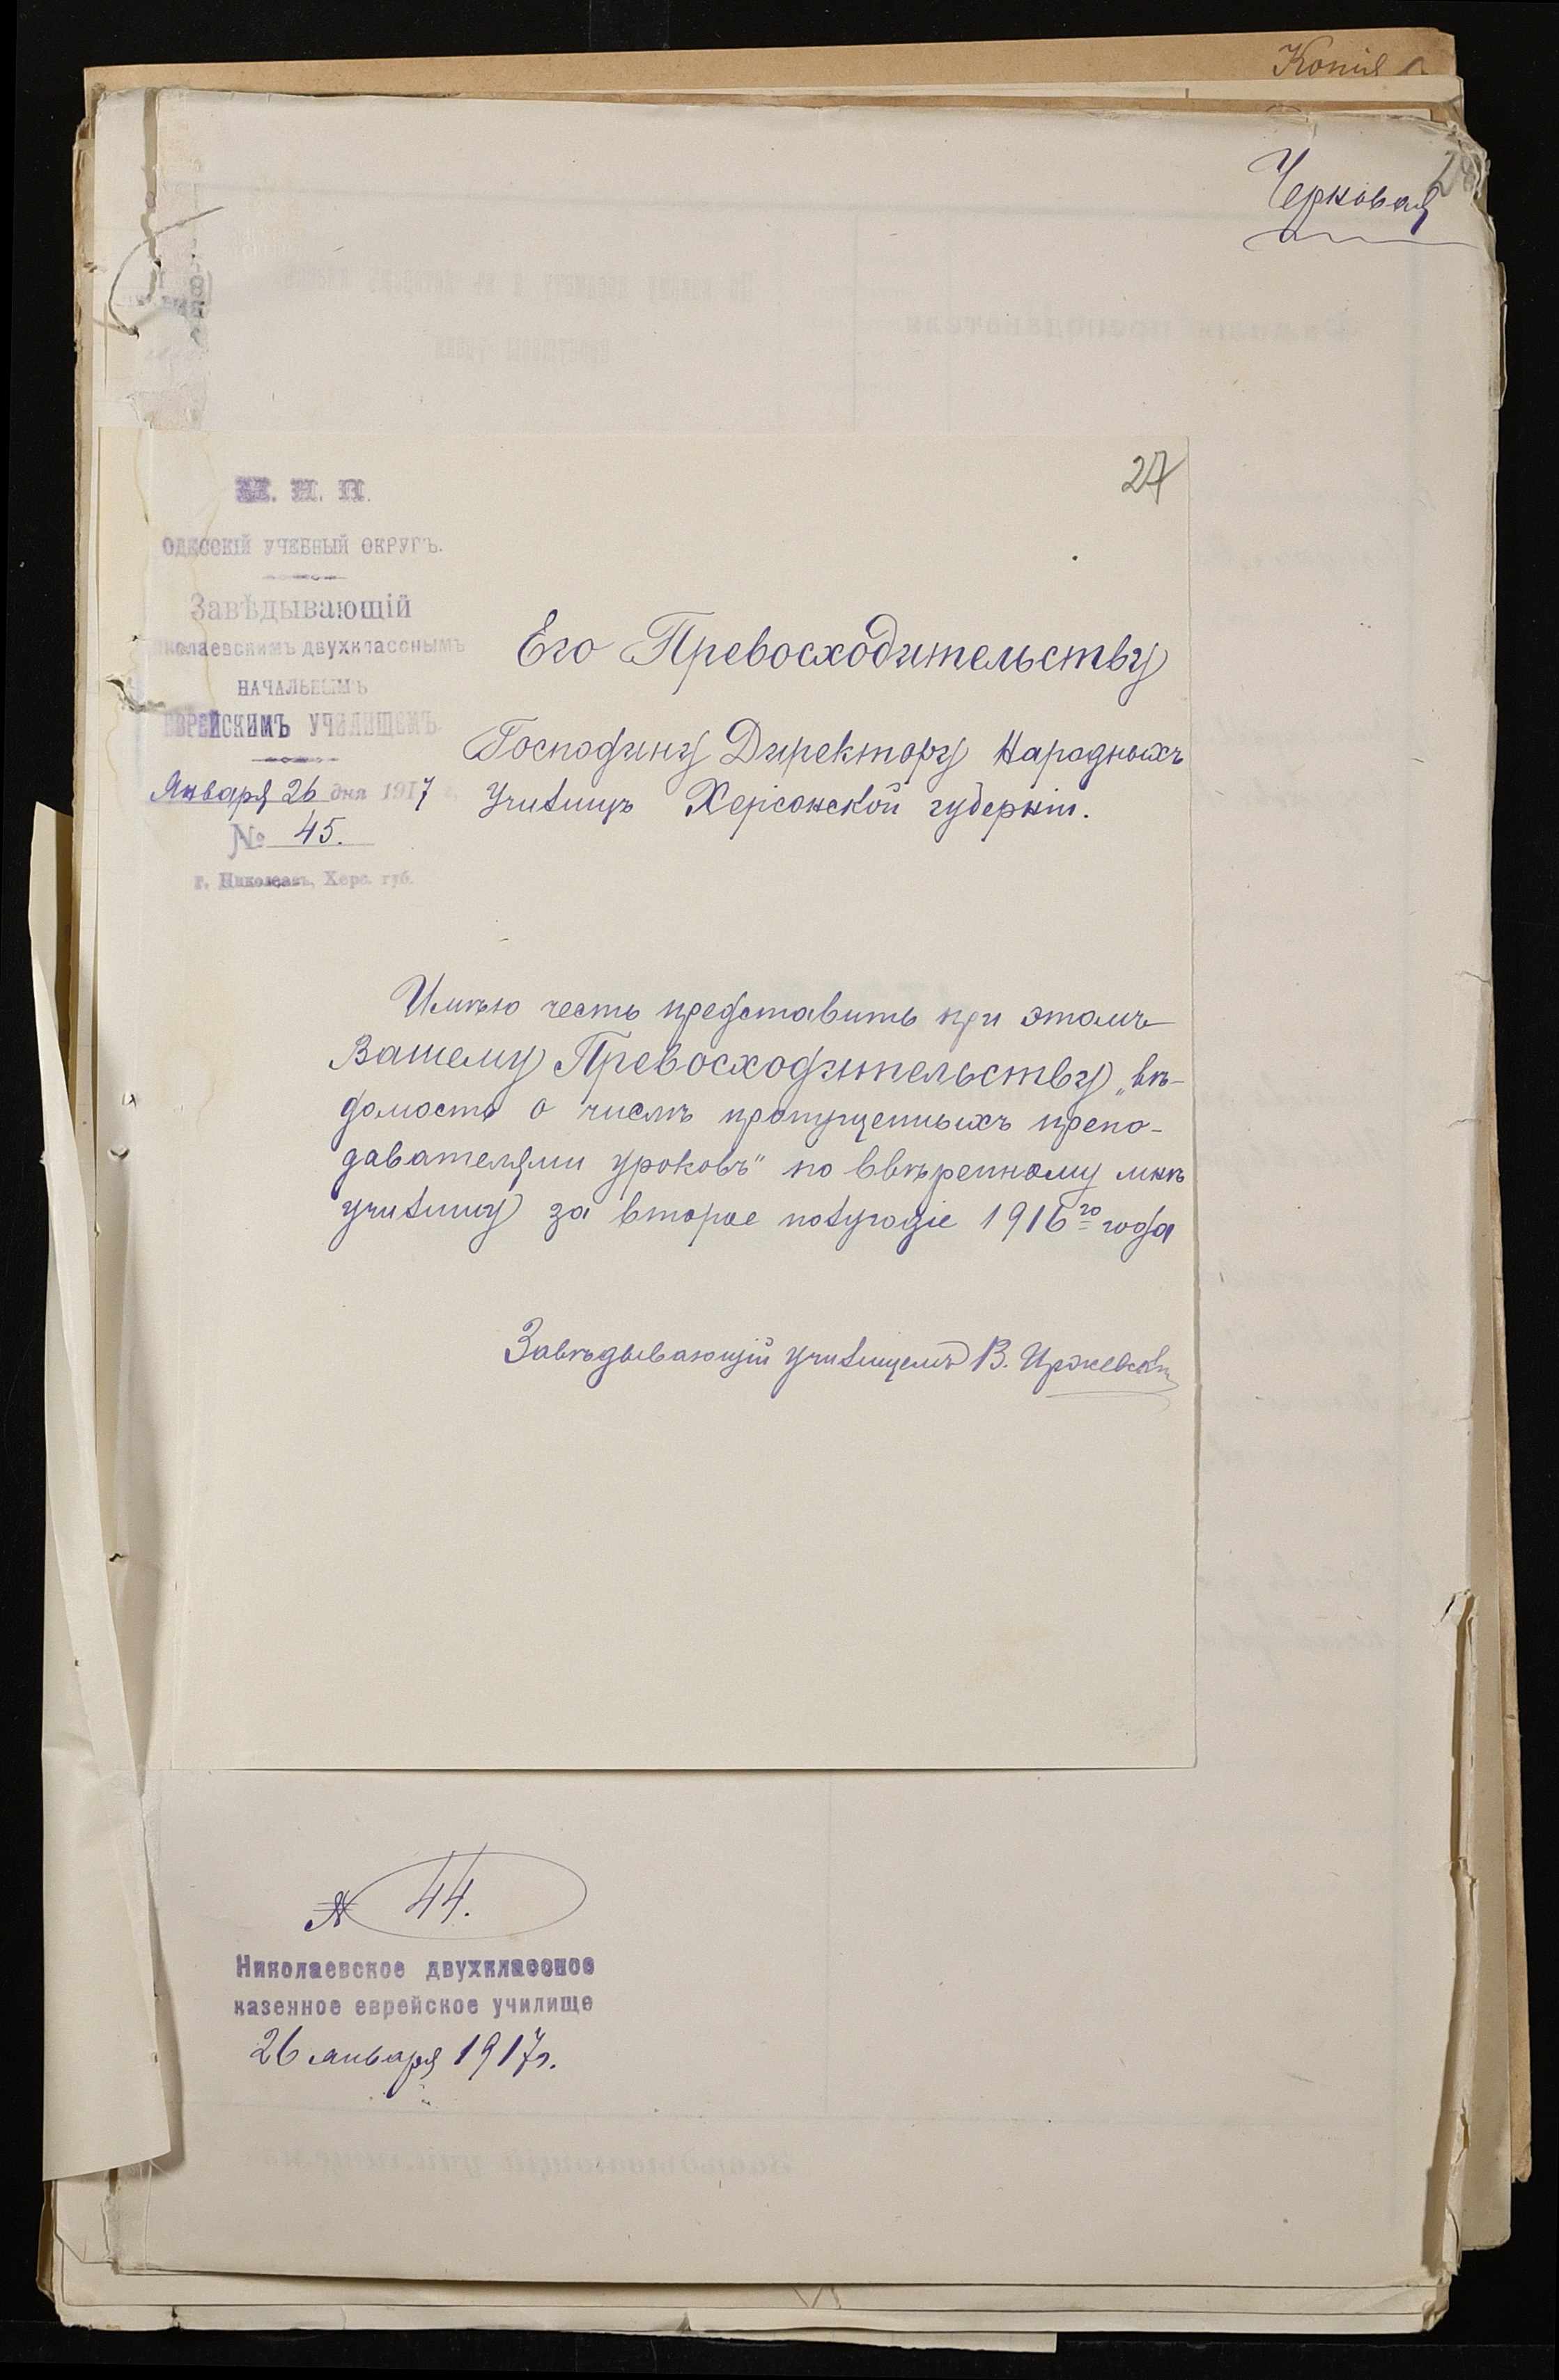 Копія
Черковая
27
М. Н. П.
ОДЕССКІЙ УЧЕБНЫЙ ОКРУГЪ.
Завѣдывающій
иколаевскимъ двухкласснымъ
НАЧАЛЬНЫМЪ
ЕВРЕЙСКИМЪ УЧИЛИЩЕМЪ.
Января 26 дня 1917
№ 45.
г. Николаевъ, Херс. губ.
Его Превосходительству
Господину Директору Народныхъ
Училищъ Херсонской губерніи.
Имѣю честь представить при этомъ
Вашему Превосходительству „вѣ-
домость о числѣ пропущенныхъ препо-
давателями уроковъ" по ввѣренному мнѣ
училищу за второе полугодіе 1916го года
Завѣдывающій училищемъ В. Иржевскій
№ 44.
Николаевское двухклассное
казенное еврейское училище
26 января 1917г.